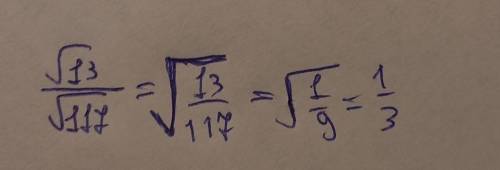 √13/√117 = √(13/117) = √(1/9) = 1/3